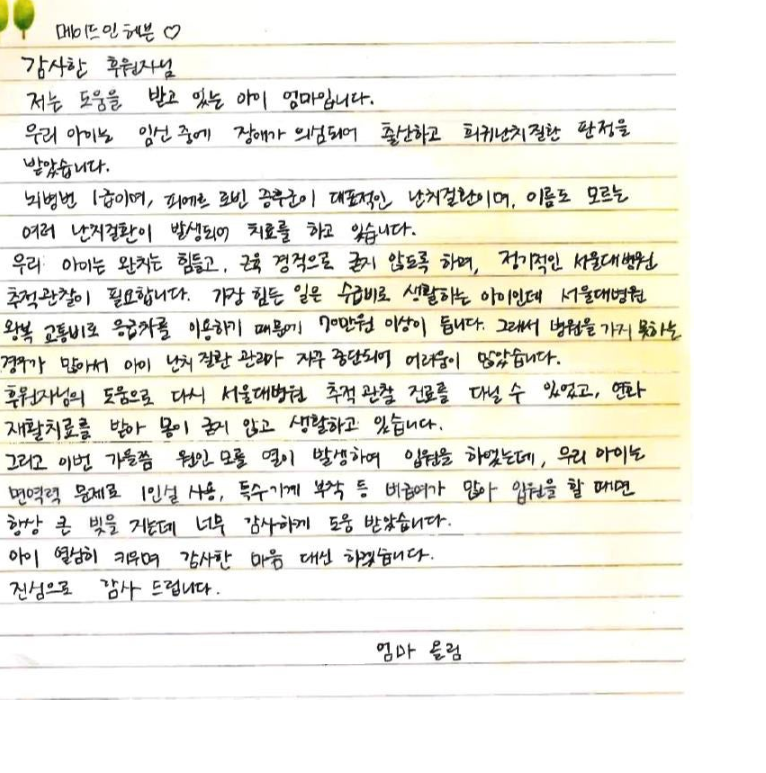 메이드인헤븐 ♡
감사한 후원자님
저는 도움을 받고 있는 아이 엄마입니다.
우리 아이는 임신 중에 장애가 의심되어 출산하고 희귀난치질환 판정을
받았습니다.
뇌병변 1급이며, 피에르 로빈 증후군이 대표적인 난치질환이며, 이름도 모르는
여러 난치질환이 발생되어 치료를 하고 있습니다.
우리 아이는 완치는 힘들고, 근육 경직으로 굳지 않도록 하며, 정기적인 서울대병원
추적관찰이 필요합니다. 가장 힘든 일은 수급비로 생활하는 아이인데 서울대병원
왕복 교통비로 응급차를 이용하기 때문에 70만원 이상이 듭니다. 그래서 병원을 가지 못하는
경우가 많아서 아이 난치질환 관리가 자꾸 중단되어 어려움이 많았습니다.
후원자님의 도움으로 다시 서울대병원 추적관찰 진료를 다닐 수 있었고,
재활치료를 받아 몸이 굳지 않고 생활하고 있습니다.
그리고 이번 가을쯤 원인 모를 열이 발생하여 입원을 하였는데, 우리 아이는
면역력 문제로 1인실 사용, 특수기계 부착 등 비급여가 많아 입원을 할 때면
항상 큰 빚을 지는데 너무 감사하게 도움 받았습니다.
아이 열심히 키우며 감사한 마음 대신 하겠습니다.
진심으로 감사 드립니다.
엄마 올림